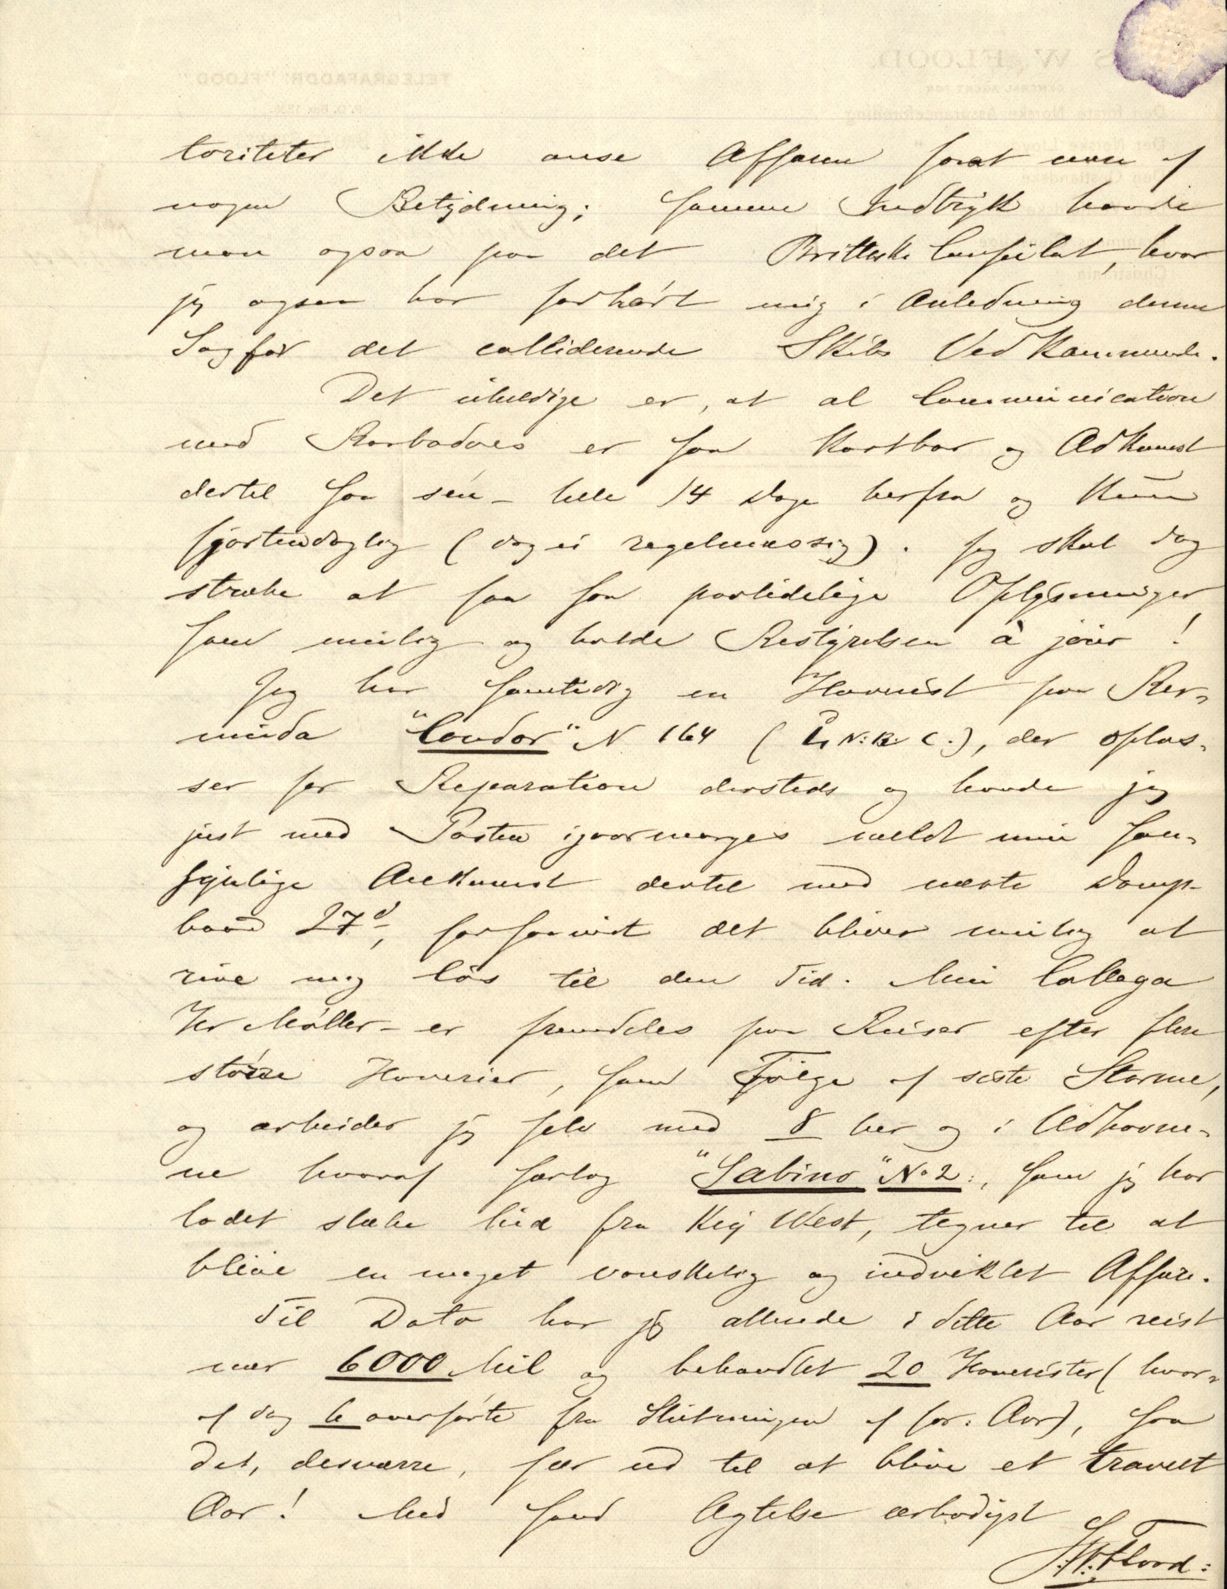 toriteter ikke anse Affæren forat være af
nogen Betydning; samme Indtryk havde
man ogsaa paa det Brittiske Consulat, hvor
jeg ogsaa har forhørt mig i Anledning denne
Sag for det colliderende Skibs Vedkommende.
Det uheldige er, at al Communication
med Barbadoes er saa kostbar og Adkomst
dertil saa sén – hele 14 Dage herfra og kun
fjortendaglig (dog ei regelmæssig). Jeg skal dog
stræbe at faa saa paalidelige Oplysninger
som mulig og holde Bestyrelsen à jour!
Jeg har samtidig en Havarist paa Ber-
muda "Condor" N 164 (N: B: C:), der oplos-
ser for Reparation dersteds og havde jeg
just med Posten igaarmorges meldt min san-
synlige Ankomst dertil med næste Damp-
baad 27d, forsaavidt det bliver mulig at
rive mig løs til den Tid. Min Collega
Hr Møller – er fremdeles paa Reiser efter flere
større Havarier, som Følge af siste Storme,
og arbeider jeg selv med 8 her og i Udhavne-
ne hvoraf særlig "Sabino" No 2:, som jeg har
ladet slæbe hid fra Key West, tegner til at
blive en meget vanskelig og indviklet Affære.
Til Dato har jeg allerede i dette Aar reist
nær 6000 Mil og behandlet 20 Havarister (hvor-
af dog 6 overførte fra Slutningen af for: Aar), saa
det, desværre, ser ud til at blive et travelt
Aar! Med sand Agtelse ærbødigst
S. W. Flood:
TELEGRAFADDR: "FLOOD"
S W. FLOOD.
GENERAL AGENT FOR